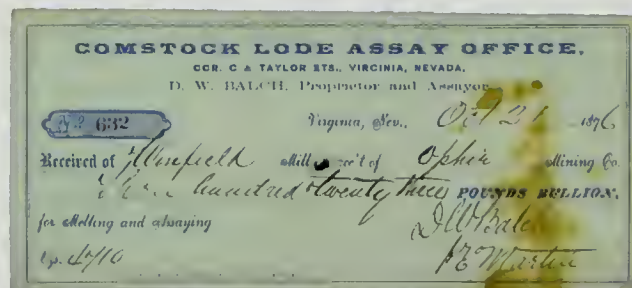 COMSTOCK LODE ASSAY OFFICE,
COR. C & TAYLOR STS., VIRGINIA, NEVADA.
D. W. BALCH, Proprietor and Assayor
No. 632 Virginia, Nev., Oct 21 1876
Received of Winfield Mill acc't of Ophir Mining Co.
hundred twenty three POUNDS BULLION,
for Melting and Assaying D W Balch
4710 E Martin